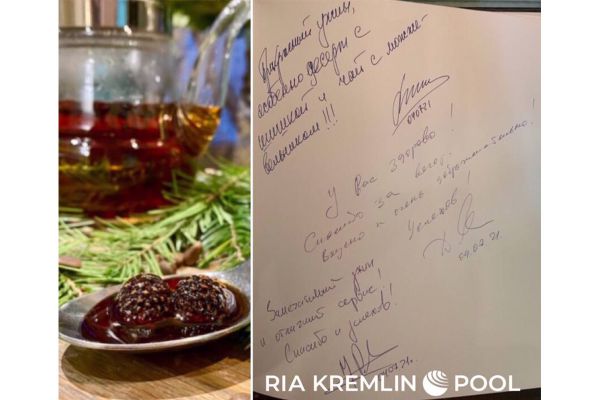 Прекрасный ужин,
особенно десерт с
шишкой и чай с можже-
вельником!!!
090721
У Вас здорово!
Спасибо за вечер!
Вкусно и очень доброжелательно!
Успехов!
09.07.21.
Замечательный ужин
и отличный сервис!
Спасибо и успехов!!
09.07.21.
RIA KREMLIN POOL